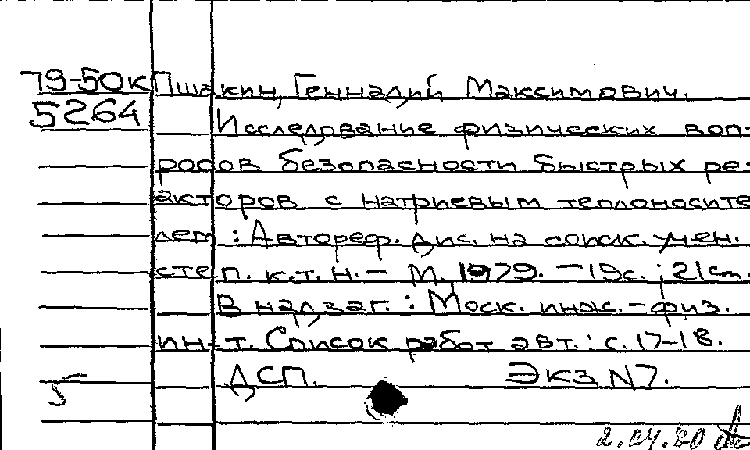 79-50к Пшакин, Геннадий Максимович.
5264 Исследование физических воп-
росов безопасности быстрых ре-
акторов с натриевым теплоносите
лем : Автореф. дис. на соиск. учен.
степ. к.т.н. - М. 1979. - 19с. ; 21см.
В надзаг. : Моск. инж.-физ.
ин-т. Список работ авт. : с. 17-18.
ДСП. Экз N7.
5
2.04.80